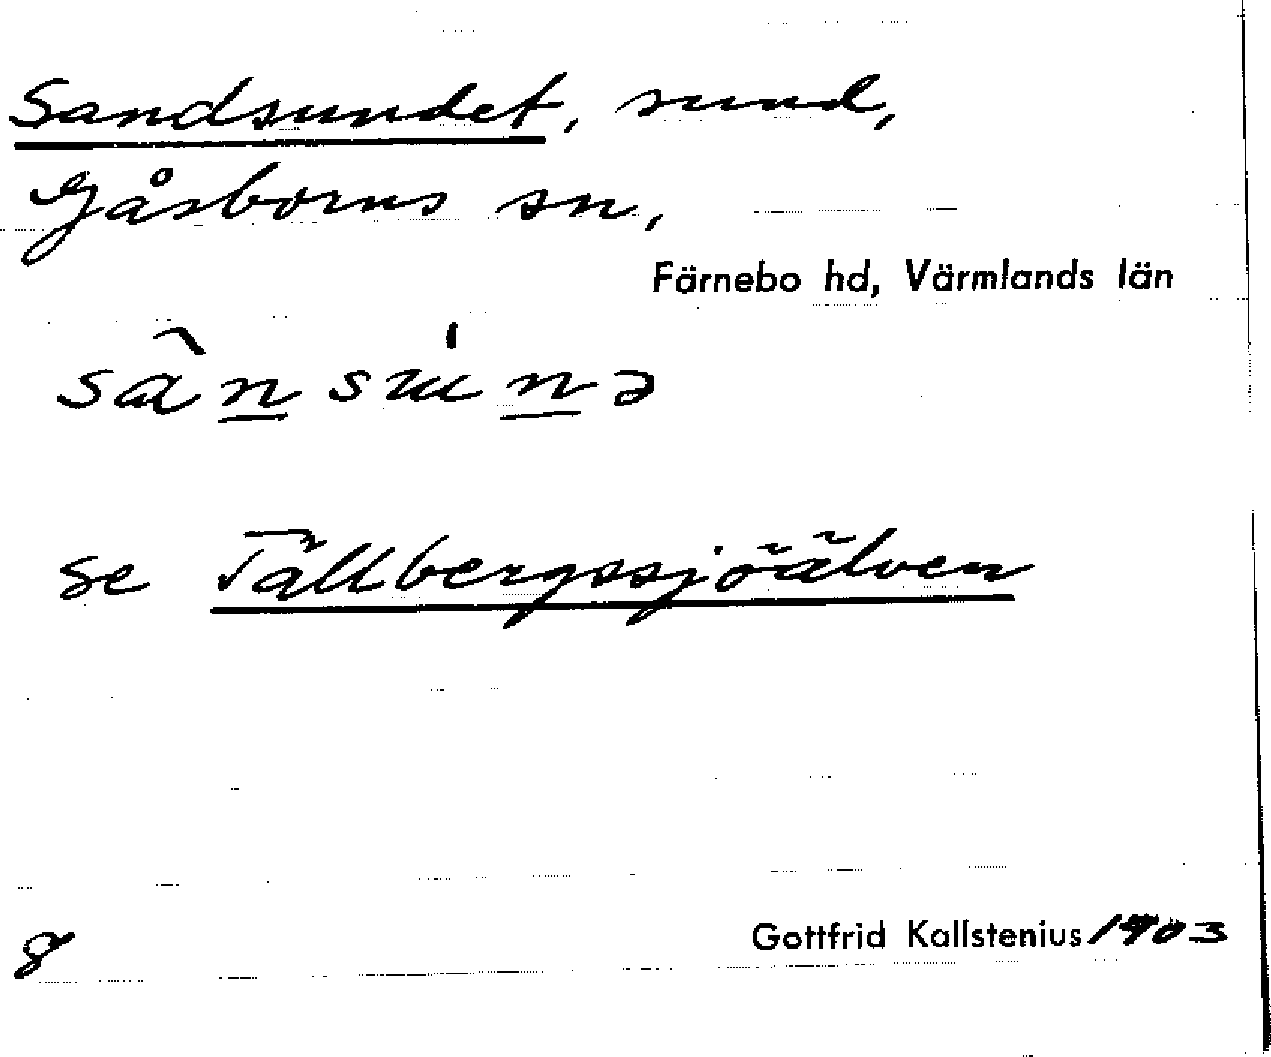 Sandsundet, sund,
Gåsborns sn,
Färnebo hd, Värmlands län
sânsuınə
se Tällbergssjöälven
8
Gottfrid Kallstenius 1903